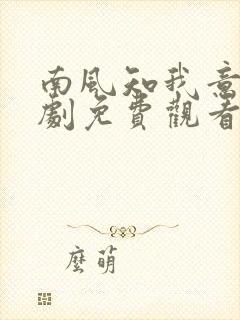 南風知我意
劇免費觀看
麼萌